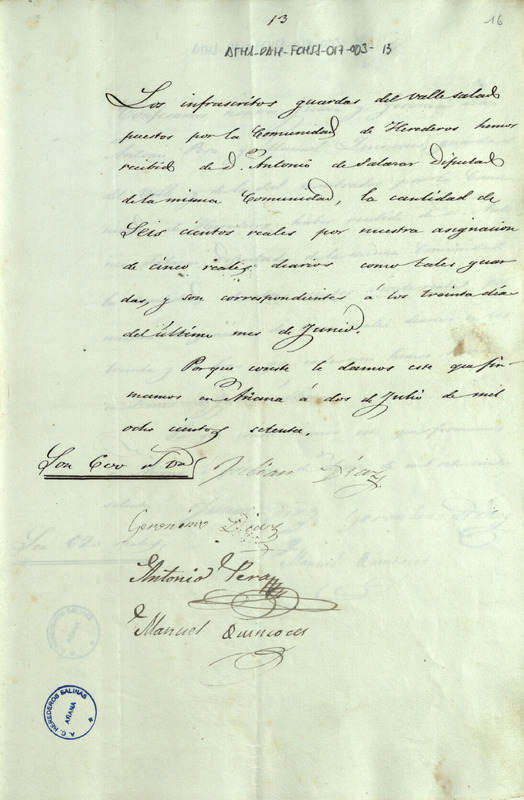 13
16
ATHA-DAH-FCHSA-017-003-13
Los infrascritos guardas del Valle salad
puestos por la Comunidad de Herederos hemos
recibido de D. Antonio de Salazar Diputad
de la misma Comunidad, la cantidad de
Seis cientos reales por nuestra asignacion
de cinco reales diarios como tales guar
das, y son correspondientes á los treinta dias
del último mes de Junio.
Porque conste le damos este que fir
mamos en Añana á dos de Julio de mil
ocho cientos setenta.
Son 600 rs
Julian Diaz
Geronimo Diaz
Antonio
Manuel Quincoces
A. C. HEREDEROS SALINAS
AÑANA